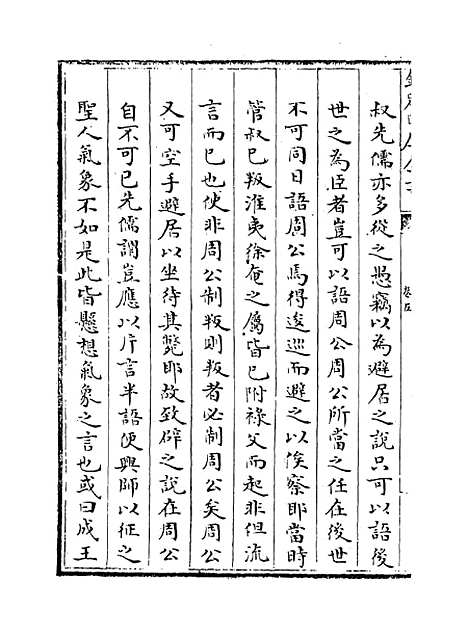 欽定四庫全書
卷五
叔先儒亦多從之愚竊以為避居之說只可以語後
世之為臣者豈可以語周公周公所當之任在後世
不可同日語周公焉得逡巡而避之以俟察耶當時
管叔已叛淮夷徐奄之屬皆已附祿父而起非但流
言而已也使非周公制叛則叛者必制周公矣周公
又可空手避居以坐待其斃耶故致辟之說在周公
自不可已先儒謂豈應以片言半語便興師以征之
聖人氣象不如是此皆懸想氣象之言也或曰成王